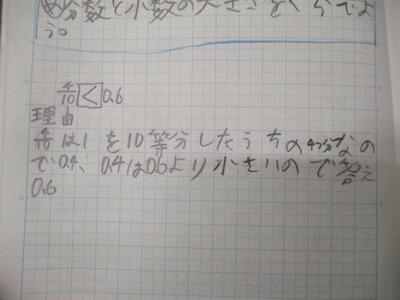 め分数と小数の大きさをくらべよ
う。
4/10 < 0.6
理由
4/10は1を10等分したうちの4つ分なの
で0.4、0.4は0.6より小さいので答え
0.6